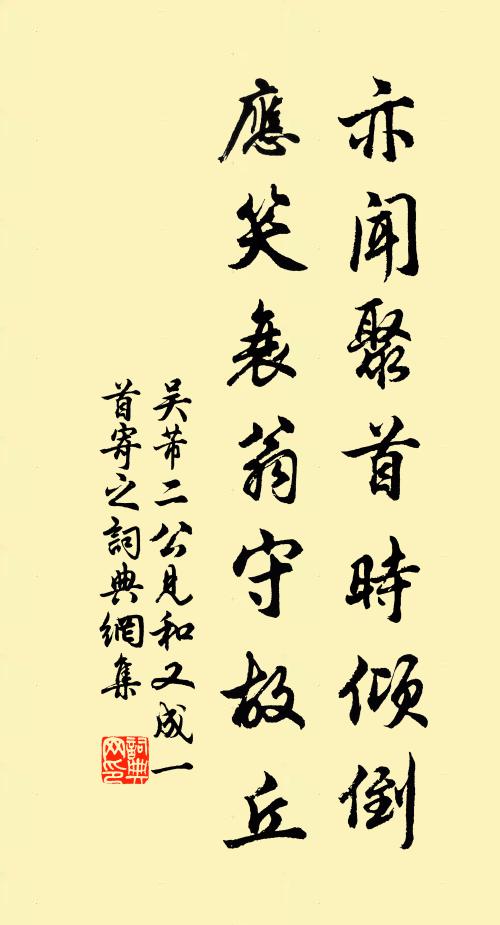 亦聞聚首時傾倒
應笑衰翁守故丘
吴芾二公見和又成一
首寄之詞典網集
詞典
网印